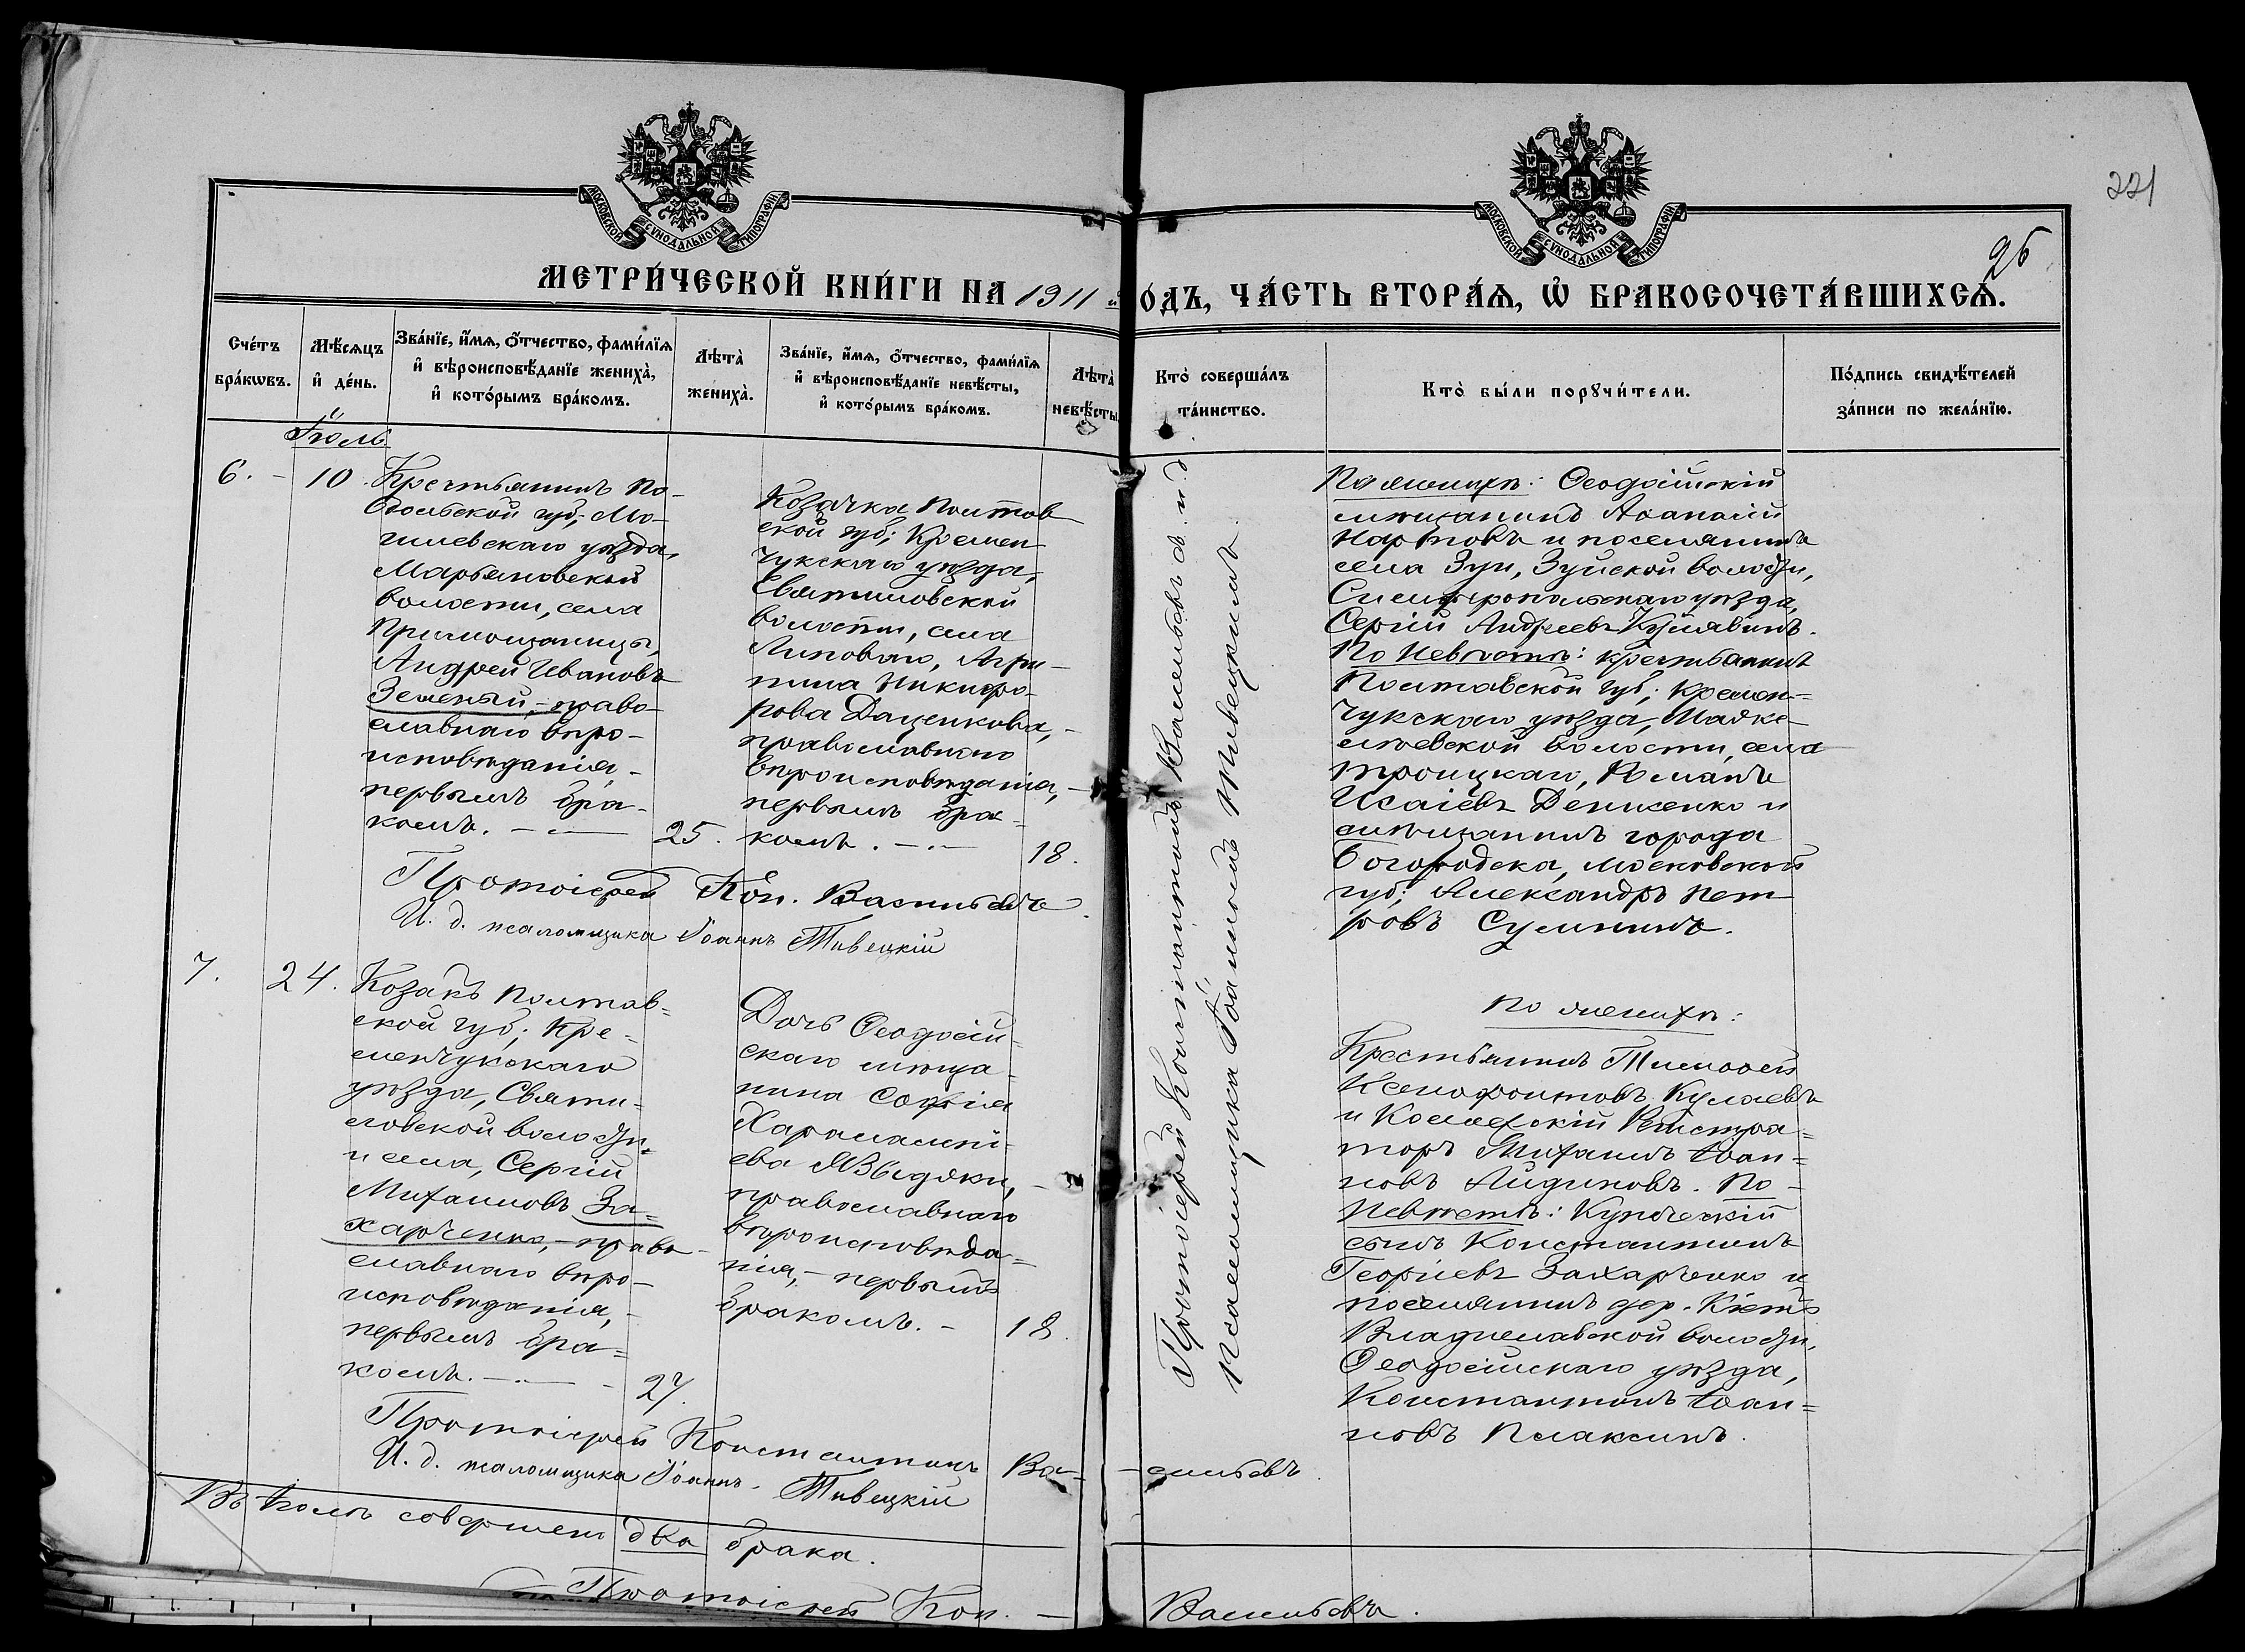 МОСКОВСКОЙ СУНОДАЛЬНОЙ ТИПОГРАФІИ.
МОСКОВСКОЙ СУНОДАЛЬНОЙ ТИПОГРАФІИ.
221
26
МЕТРИ́ЧЕСКОЙ КНИ́ГИ НА 1911 й
О́ДЪ, ЧА́СТЬ ВТОРА́Ѧ, Ѽ БРАКОСОЧЕТА́ВШИХСѦ.
Сче́тъ бра́кѡвъ.
Мѣ́сѧцъ и҆ де́нь.
Зва́нїе, и҆́мѧ, ѻ҆́тчество, фами́лїѧ
и҆ вѣроисповѣ́данїе жениха̀,
и҆ кото́рымъ бра́комъ.
Лѣта̀ жениха̀.
Зва́нїе, и҆́мѧ, ѻ҆́тчество, фами́лїѧ
и҆ вѣроисповѣ́данїе невѣ́сты,
и҆ кото́рымъ бра́комъ.
Лѣта̀ невѣ́сты
Кто̀ соверша́лъ та́инство.
Кто̀ бы́ли порꙋчи́тели.
По́дпись свидѣ́телей за́писи по жела́нїю.
Іюль
6. - 10.
Крестьянинъ По-
дольской губ; Мо-
гилевскаго уѣзда,
Марьяновской
волости, села
Андрей Ивановъ
Зеленый, - право-
славнаго вѣро-
исповѣданія, -
первымъ бра-
комъ. - 25.
Козачка Полтав
ской губ; Кремен
чукскаго уѣзда,
Святиловской
волости, села
Липоваго, Агри-
пина Никифо-
рова Даценкова, -
православнаго
вѣроисповѣданія, -
первымъ бра-
комъ. - 18.
Протоіерей Кон. Васильевъ
И. д. псаломщика Іоаннъ Тивецкій
Протоіерей Константинъ Васильевъ съ и. д.
псаломщика Іоанномъ Тивецкимъ
По женихѣ: Ѳеодосійскій
мѣщанинъ Аѳанасій
Нартовъ и поселянинъ
села Зуи, Зуйской волости,
Симферопольскаго уѣзда,
Сергій Андреевъ
По Невѣстѣ: крестьянинъ
Полтавской губ; Кремен-
чукскаго уѣзда,
волости, села
Троицкаго, Романъ
Исаіевъ Денисенко и
мѣщанинъ города
Богородска, Московской
губ; Александръ Пет-
ровъ
7. 24.
Козакъ Полтав=
ской губ; Кре=
менчукскаго
уѣзда, Святи=
ловской волости
и села, Сергій
Михаиловъ За=
харченко, - право-
славнаго вѣро-
исповѣданія, -
первымъ бра=
комъ. - 27.
Дочь Ѳеодосій-
скаго мѣща-
нина Софія
Харалампі-
ева -
православнаго
вѣроисповѣда=
нія, - первымъ
бракомъ. - 18.
Протоіерей Константинъ Ва- -сильевъ.
И. д. псаломщика Іоаннъ Тивецкій
По женихѣ:
Крестьянинъ Тимоѳей
Ксенофонтовъ Кулаевъ
и Коллежскій Регистра=
торъ Михаилъ Іоан=
новъ Айдиновъ. По-
Невѣстѣ: Купеческій
сынъ Константинъ
Георгіевъ Захарченко и
поселянинъ дер. Кіетъ
Владиславской волости,
Ѳеодосійскаго уѣзда,
Константинъ Іоан=
новъ Плаксинъ.
Въ Іюлѣ совершено два брака.
Протоіерей Кон. - Васильевъ.